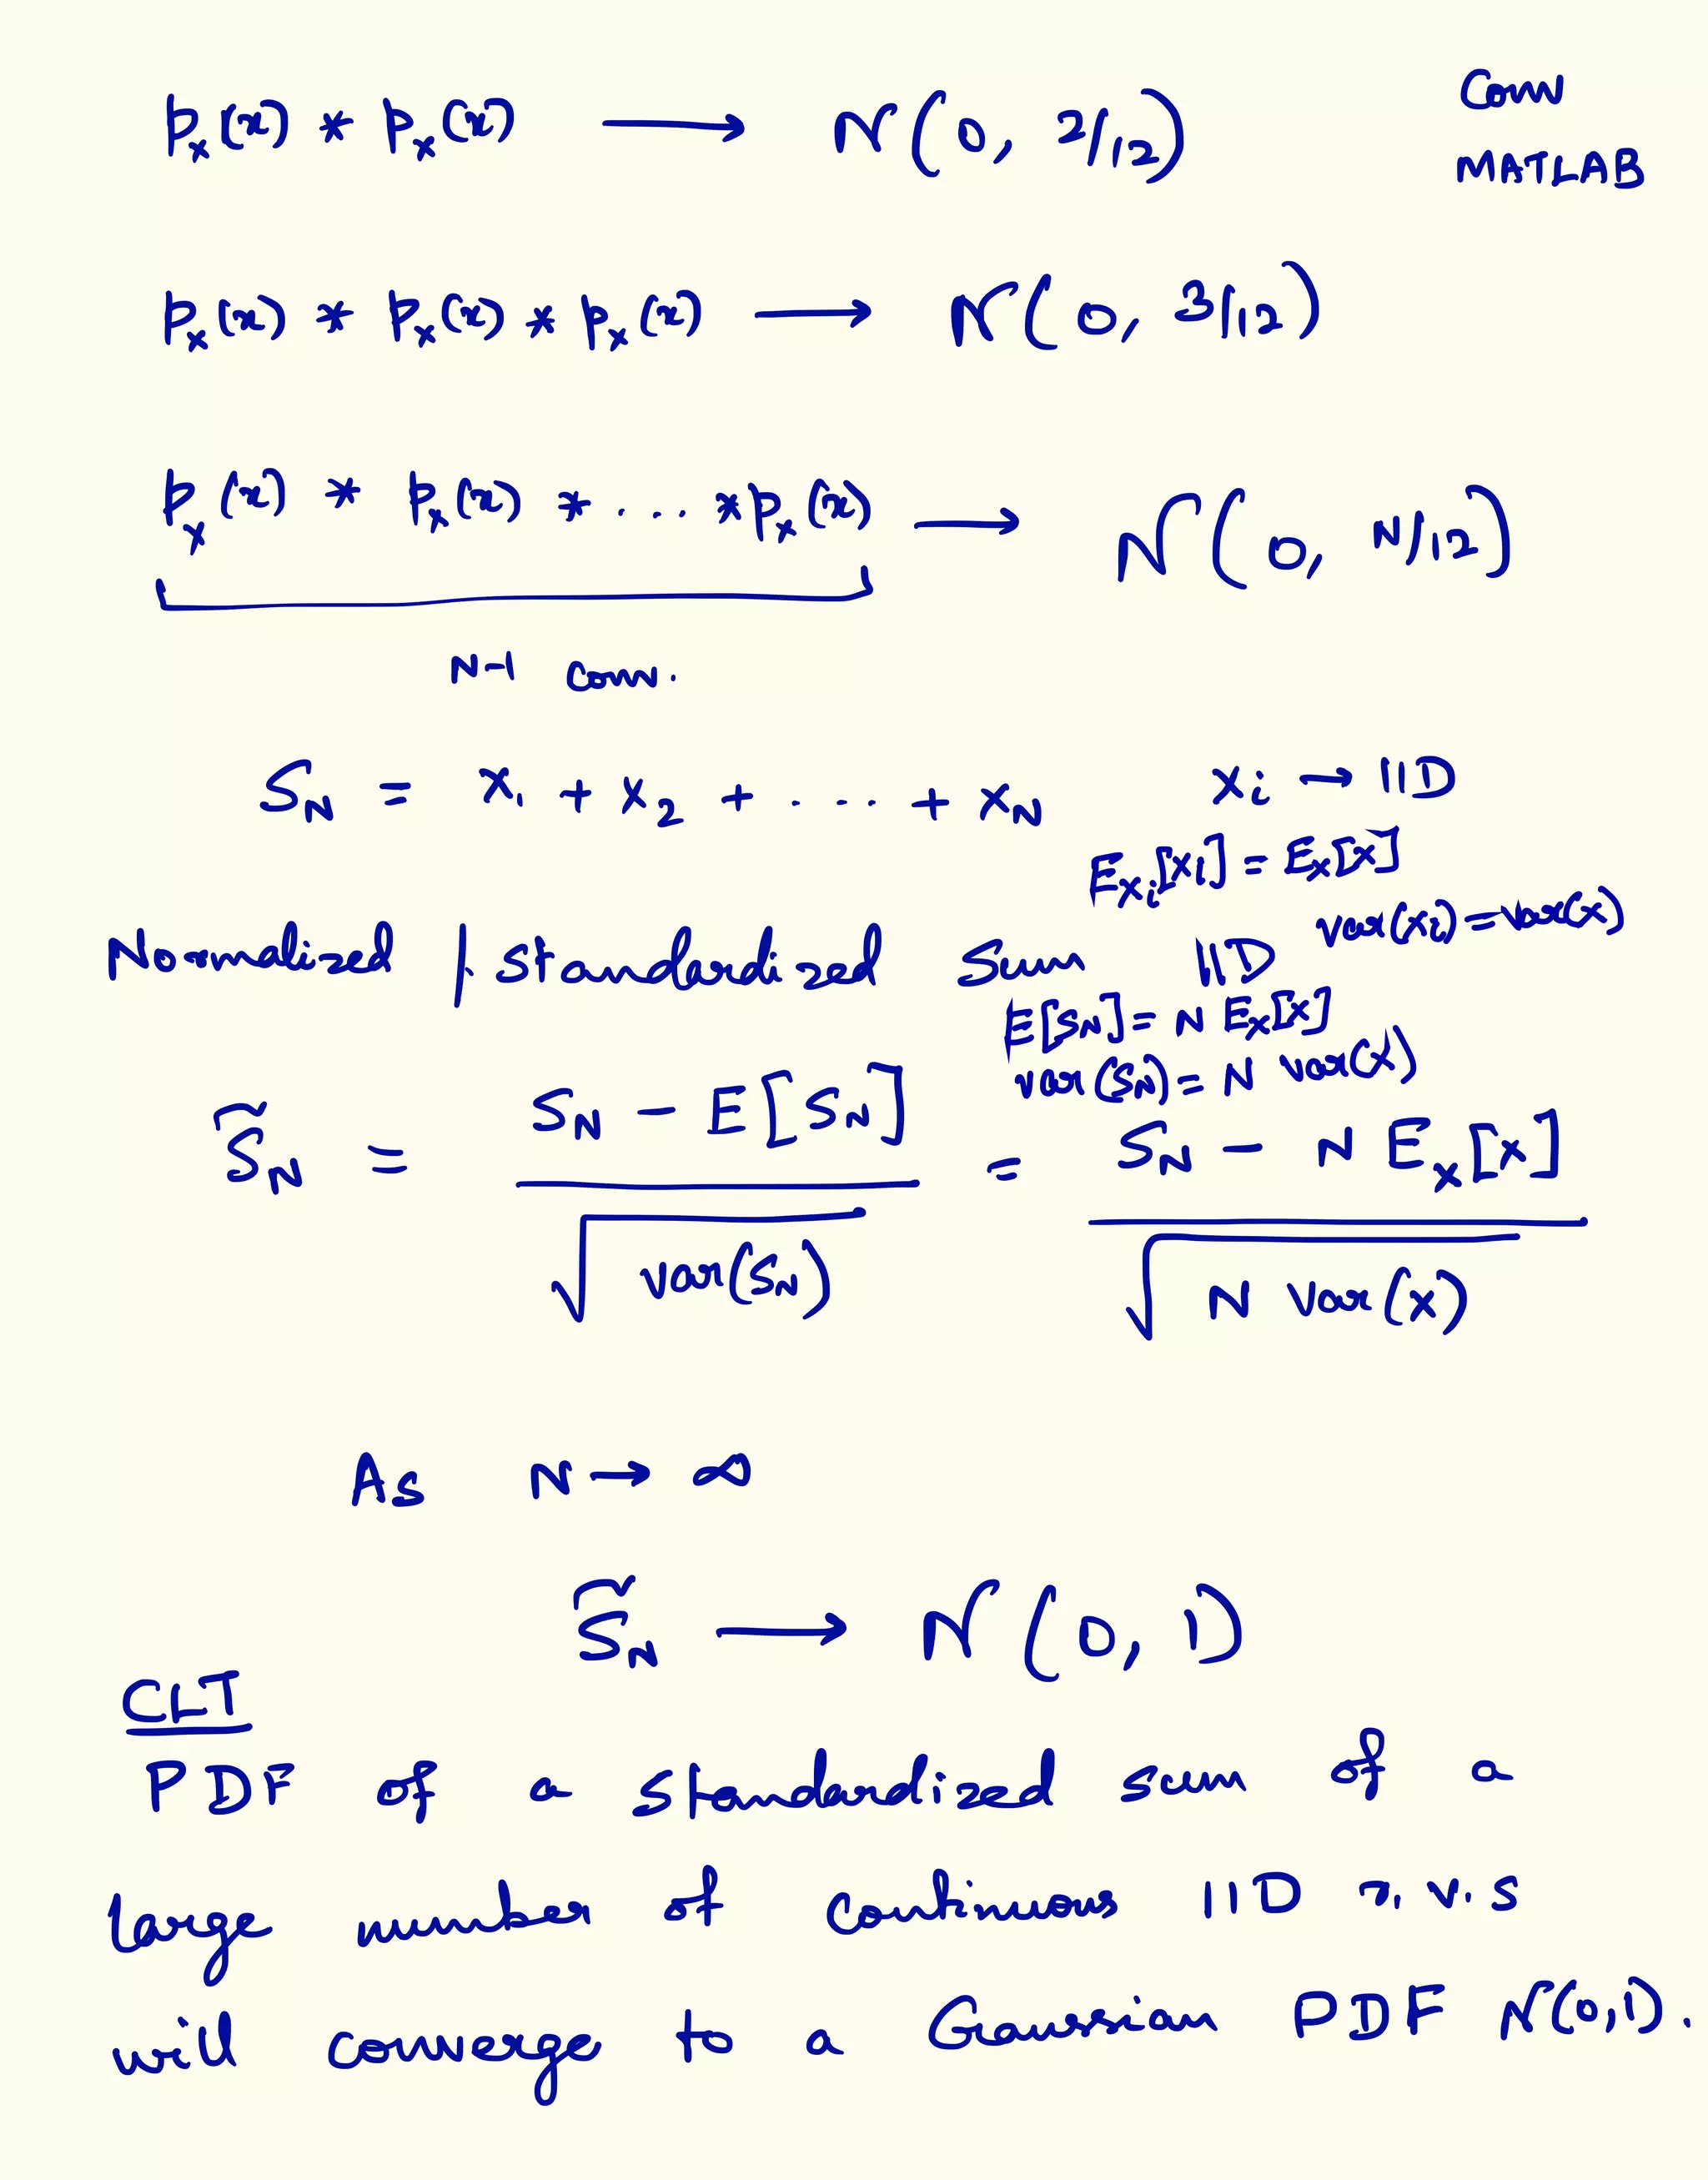 p_X(x) * p_X(x) ⟶ N(0, 2/12)
Conv
MATLAB
p_X(x) * p_X(x) * p_X(x) ⟶ N(0, 3/12)
p_X(x) * p_X(x) * . . . * p_X(x) ⟶ N(0, N/12)
N-1 conv.
S_N = X_1 + X_2 + . . . . + X_N
X_i → IID
E_{X_i}[X_i] = E_X[X]
var(X_i) = var(X)
Normalized / standardized sum IID
E[S_N] = N E_X[X]
var(S_N) = N var(X)
S̃_N = (S_N - E[S_N]) / √var(S_N) = (S_N - N E_X[X]) / √(N var(X))
As N → ∞
S̃_N ⟶ N(0, 1)
CLT
PDF of a standardized sum of a
large number of continuous IID r.v.s
will converge to a Gaussian PDF N(0,1).